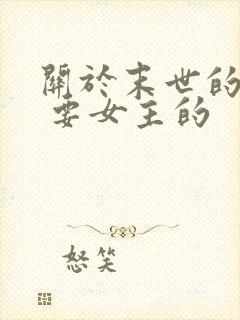 關於末世的
要女主的
怒笑